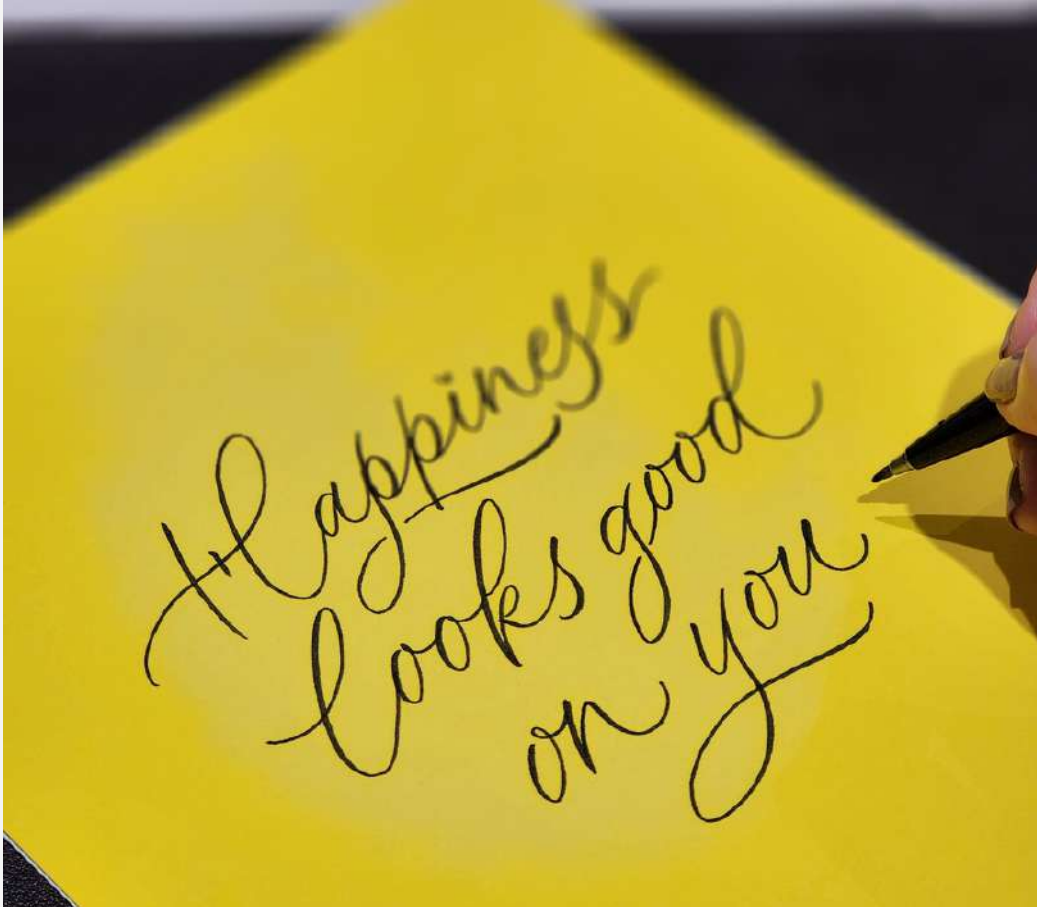 Happiness
looks good
on you